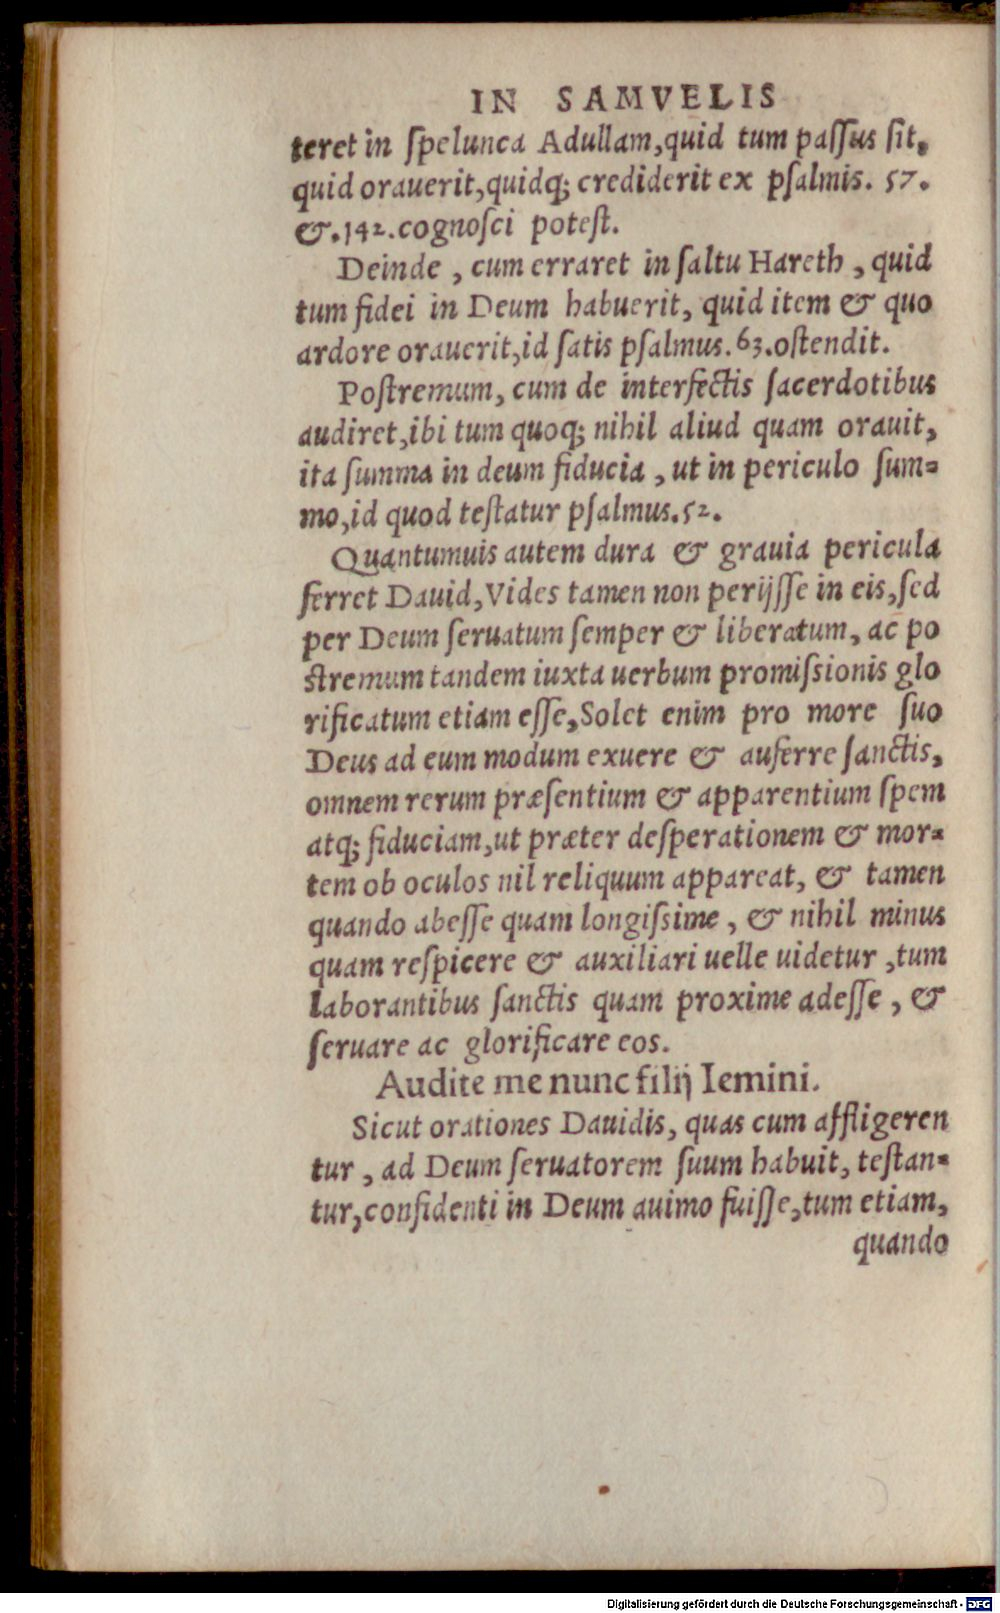 IN SAMVELIS
teret in ſpelunca Adullam,quid tum paſſus ſit,
quid orauerit,quidq; crediderit ex pſalmis. 57.
&.142.cognoſci poteſt.
Deinde , cum erraret in ſaltu Hareth , quid
tum fidei in Deum habuerit, quid item & quo
ardore orauerit,id ſatis pſalmus.63.oſtendit.
Poſtremum, cum de interfectis ſacerdotibus
audiret,ibi tum quoq; nihil aliud quam orauit,
ita ſumma in deum fiducia , ut in periculo ſum=
mo,id quod teſtatur pſalmus.52.
Quantumuis autem dura & grauia pericula
ferret Dauid,Vides tamen non perijſſe in eis,ſed
per Deum ſeruatum ſemper & liberatum, ac po
ſtremum tandem iuxta uerbum promiſsionis glo
rificatum etiam eſſe,Solet enim pro more ſuo
Deus ad eum modum exuere & auferre ſanctis,
omnem rerum præſentium & apparentium ſpem
atq; fiduciam,ut præter deſperationem & mor=
tem ob oculos nil reliquum appareat, & tamen
quando abeſſe quam longiſsime , & nihil minus
quam reſpicere & auxiliari uelle uidetur ,tum
laborantibus ſanctis quam proxime adeſſe , &
ſeruare ac glorificare eos.
Audite me nunc filij Iemini.
Sicut orationes Dauidis, quas cum affligeren
tur , ad Deum ſeruatorem ſuum habuit, teſtan=
tur,confidenti in Deum auimo fuiſſe,tum etiam,
quando
Digitalisierung gefördert durch die Deutsche Forschungsgemeinschaft - DFG